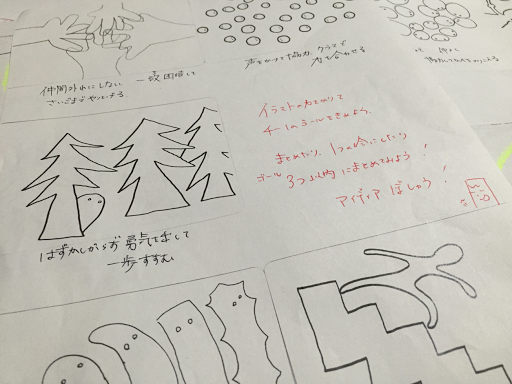 仲間外れにしない 一致団結して
さいごまでやりとげる
声をかけて協力 クラスで
力を合わせる
イラストの力をかりて
チームのゴールをきめよう。
まとめたり、1つの合にしたり
ゴール 3つ以内にまとめてみよう!
アイディア ぼしゅう!
はずかしがらず 勇気を出して
一歩すすむ